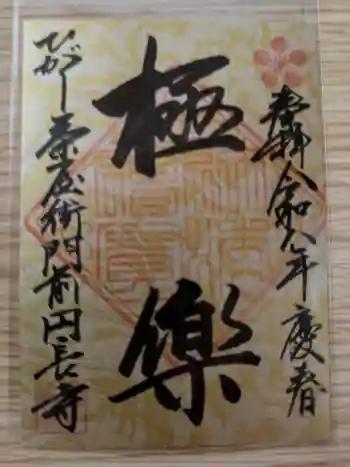 奉拝 令和八年 慶春
極樂
ひがし茶屋街門前円長寺